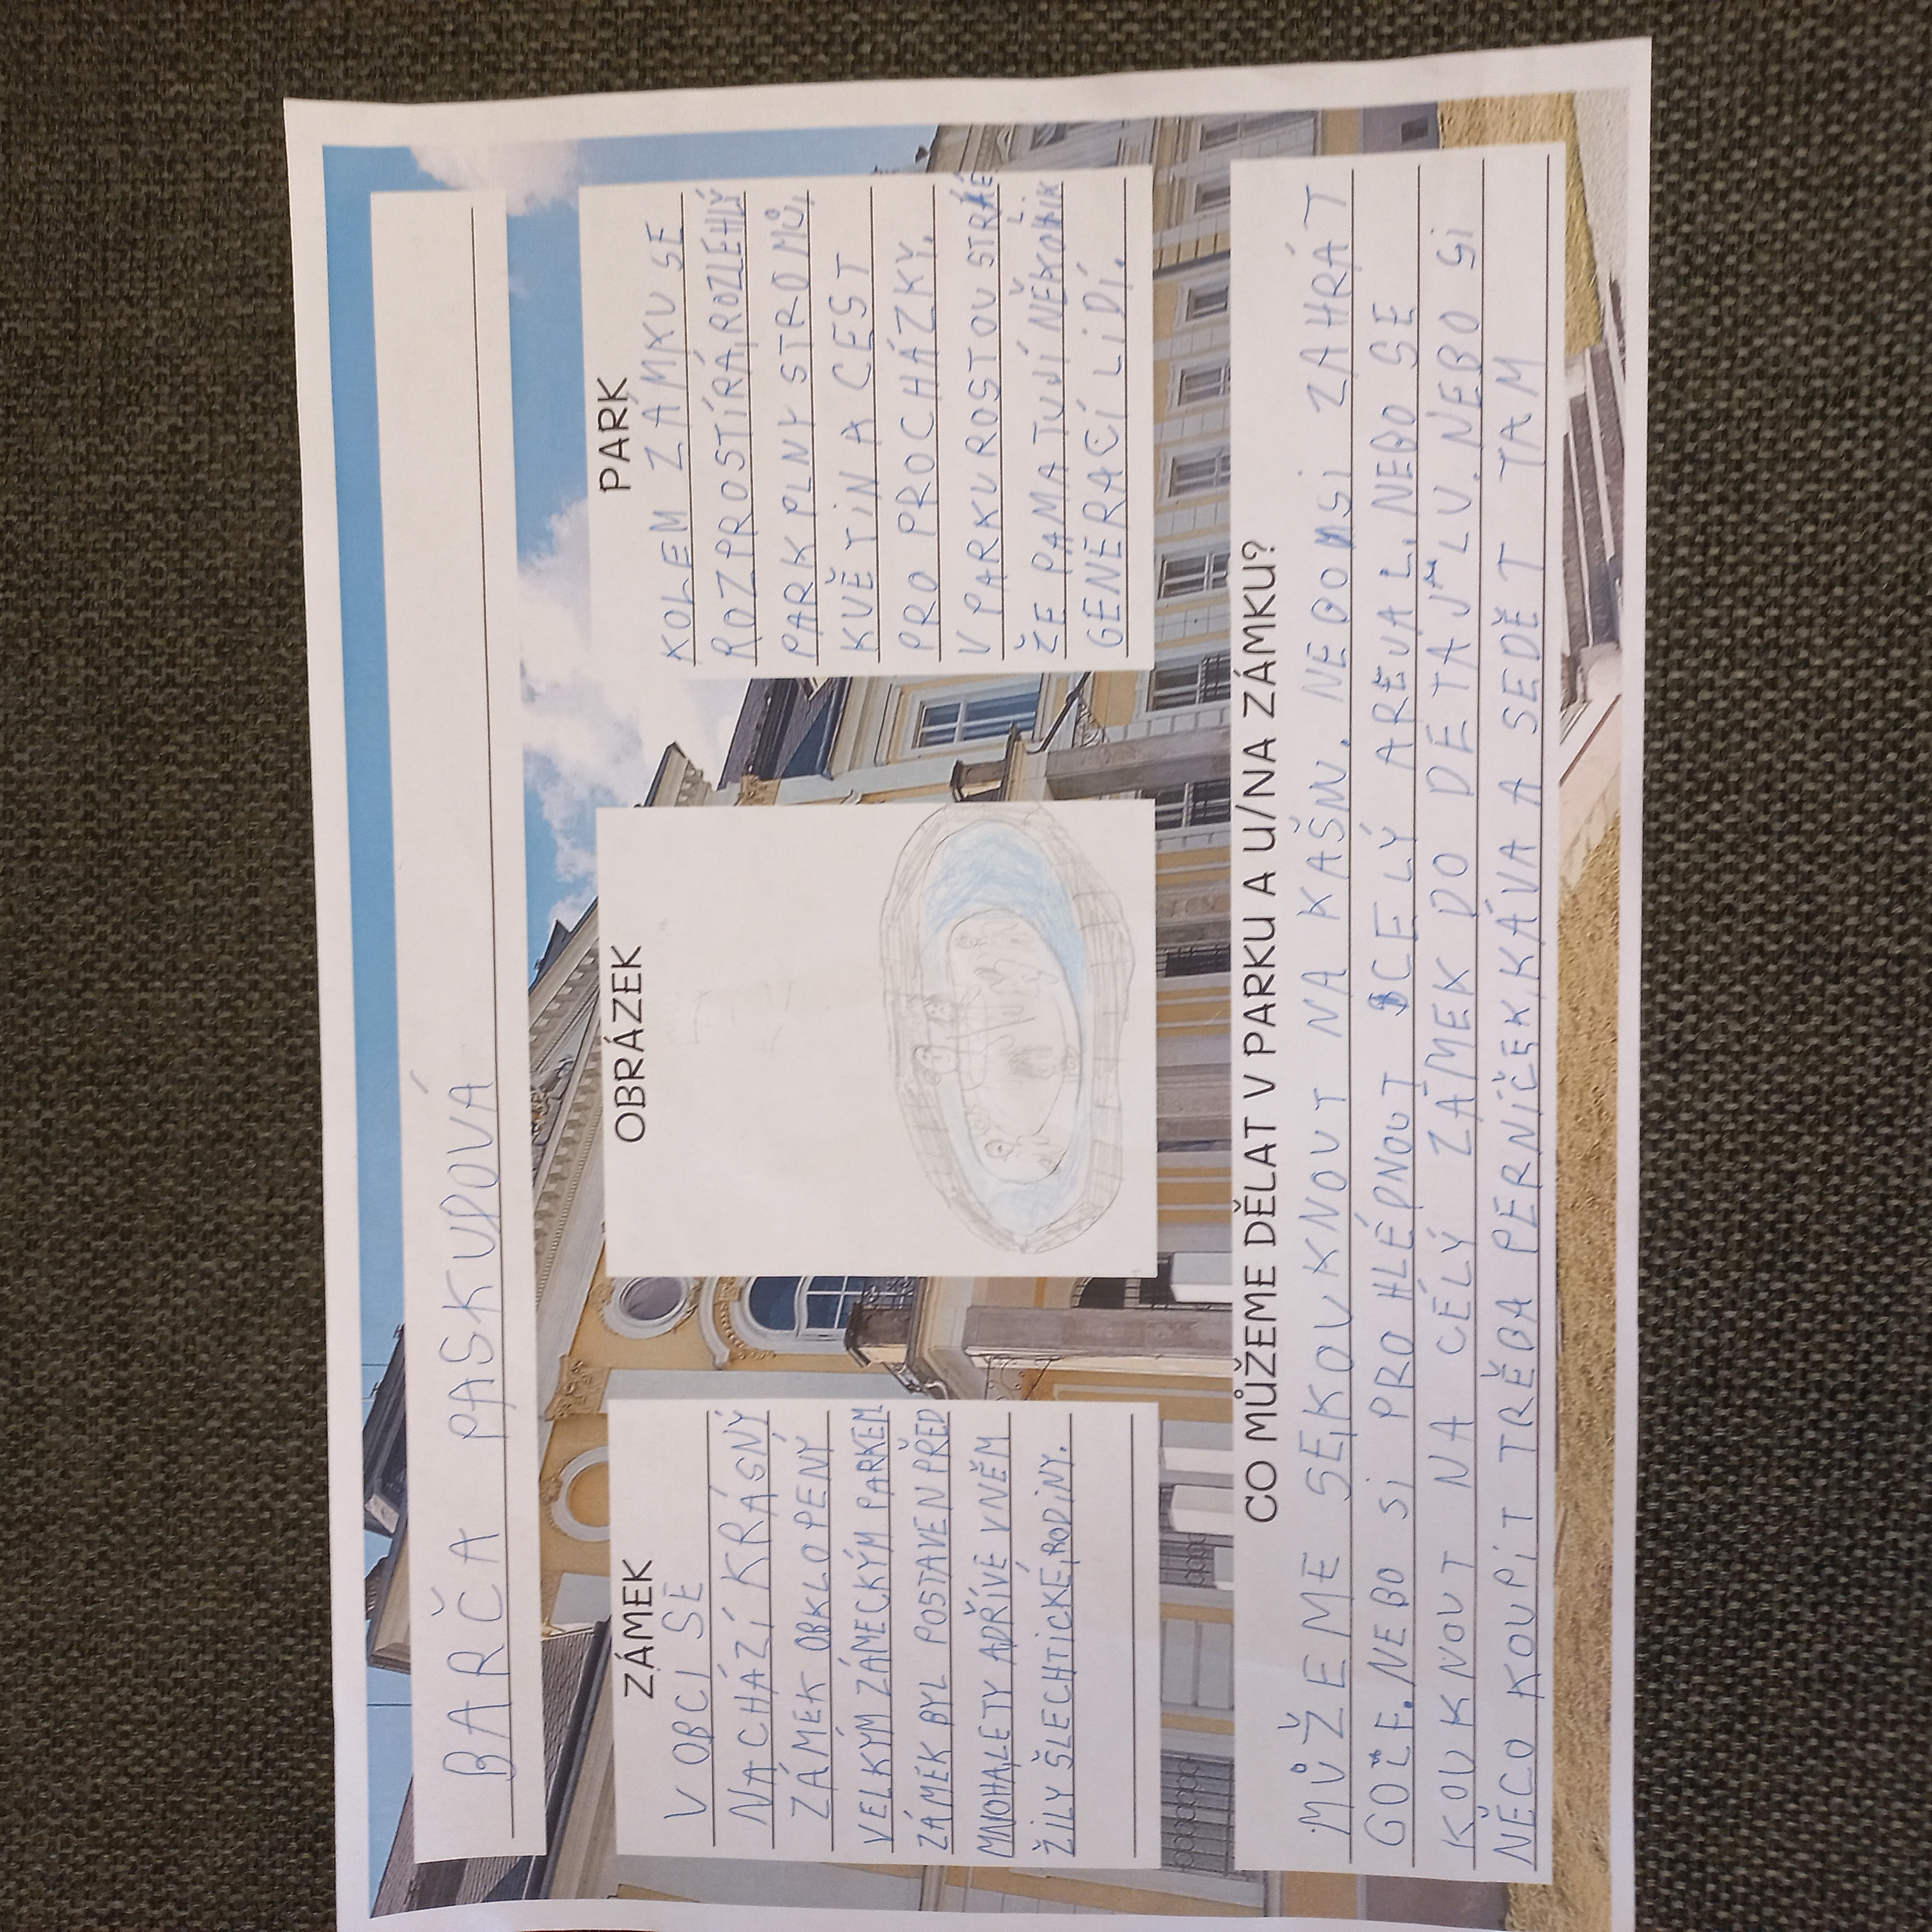 BARČA PASKUDOVÁ
ZÁMEK
V OBCI SE
NACHÁZÍ KRÁSNÝ
ZÁMEK OBKLOPENÝ
VELKÝM ZÁMECKÝM PARKEM
ZÁMEK BYL POSTAVEN PŘED
MNOHALETY ADŘÍVE VNĚM
ŽILY ŠLECHTICKÉ, RODINY.
OBRÁZEK
PARK
KOLEM ZÁMKU SE
ROZPROSTÍRÁ, ROZLEHLÝ
PARK PLNÝ STROMŮ,
KVĚTIN A CEST
PRO PROCHÁZKY.
V PARKU ROSTOU STRÁ
ŽE PAMATUJÍ NĚKOLIK
GENERACÍ LIDÍ.
CO MŮŽEME DĚLAT V PARKU A U/NA ZÁMKU?
MŮŽEME SE, KOUKNOUT NA KAŠNU. NEBO SI ZAHRÁT
GOLF. NEBO SI PROHLÉDNOUT CELÝ AREÁL. NEBO SE
KOUKNOUT NA CELÝ ZÁMEK DO DETAJLU. NEBO SI
NĚCO KOUPIT TRĚBA PERNÍČEK, KÁVA A SEDĚT TAM